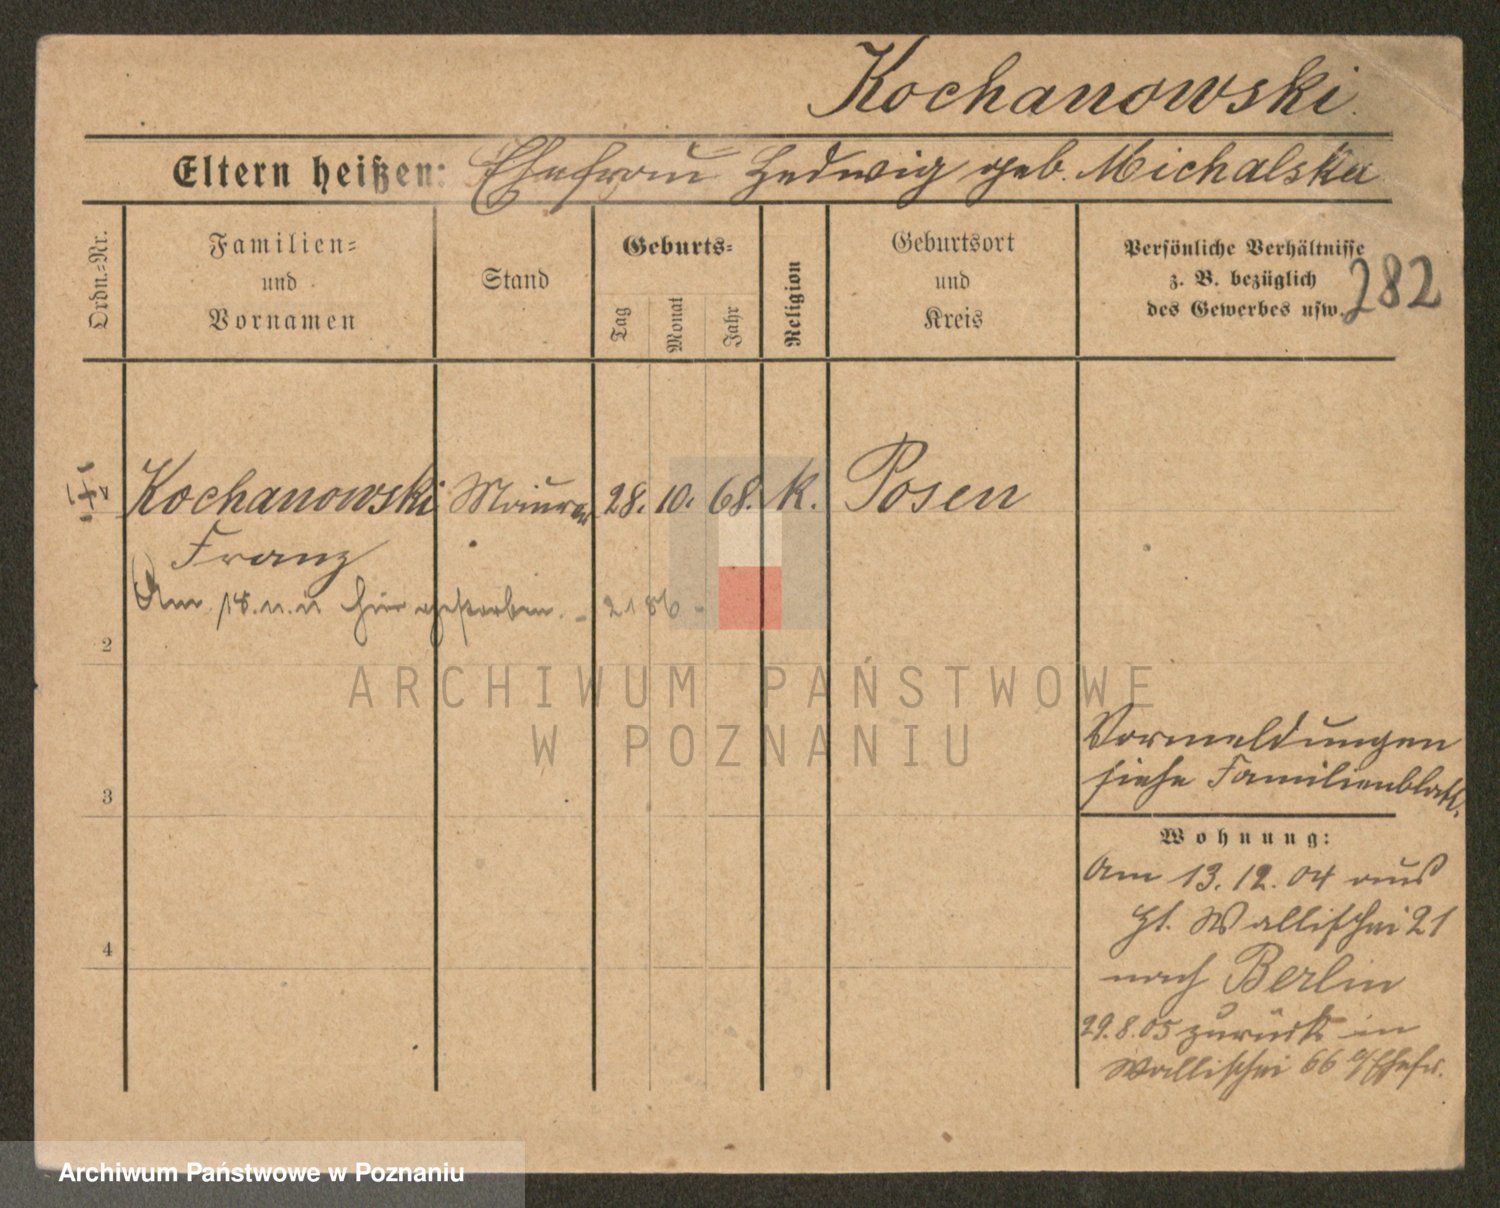 Kochanowski
Eltern heißen: Ehefrau Hedwig geb. Michalska
Ordn.-Nr.
Familien-
und
Vornamen
Stand
Geburts-
Tag
Monat
Jahr
Religion
Geburtsort
und
Kreis
Persönliche Verhältnisse
z. B. bezüglich
des Gewerbes usw.
282
Kochanowski Maurer 28. 10. 68. k. Posen
Franz
Am 18. hier gestorben. - 2186 -
2
ARCHIWUM PAŃSTWOWE
W POZNANIU
Vormeldungen
siehe Familienblatt.
3
Wohnung:
Am 13. 12. 04 aus
Wallischei 21
4
nach Berlin
29. 8. 05 zurück in
Wallischei 66 Ehefr.
Archiwum Państwowe w Poznaniu